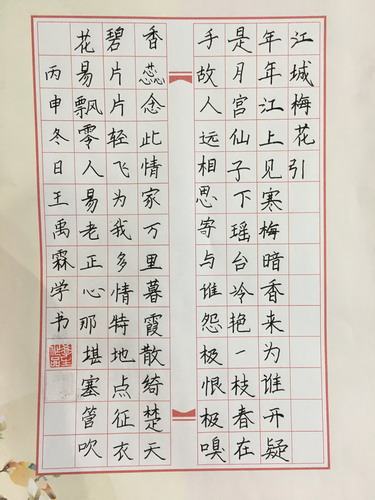 江城梅花引
年年江上见寒梅暗香来为谁开疑
是月宫仙子下瑶台冷艳一枝春在
手故人远相思寄与谁怨极恨极嗅
香蕊念此情家万里暮霞散绮楚天
碧片片轻飞为我多情特地点征衣
花易飘零人易老正心那堪塞管吹
丙申冬日王禹霖学书